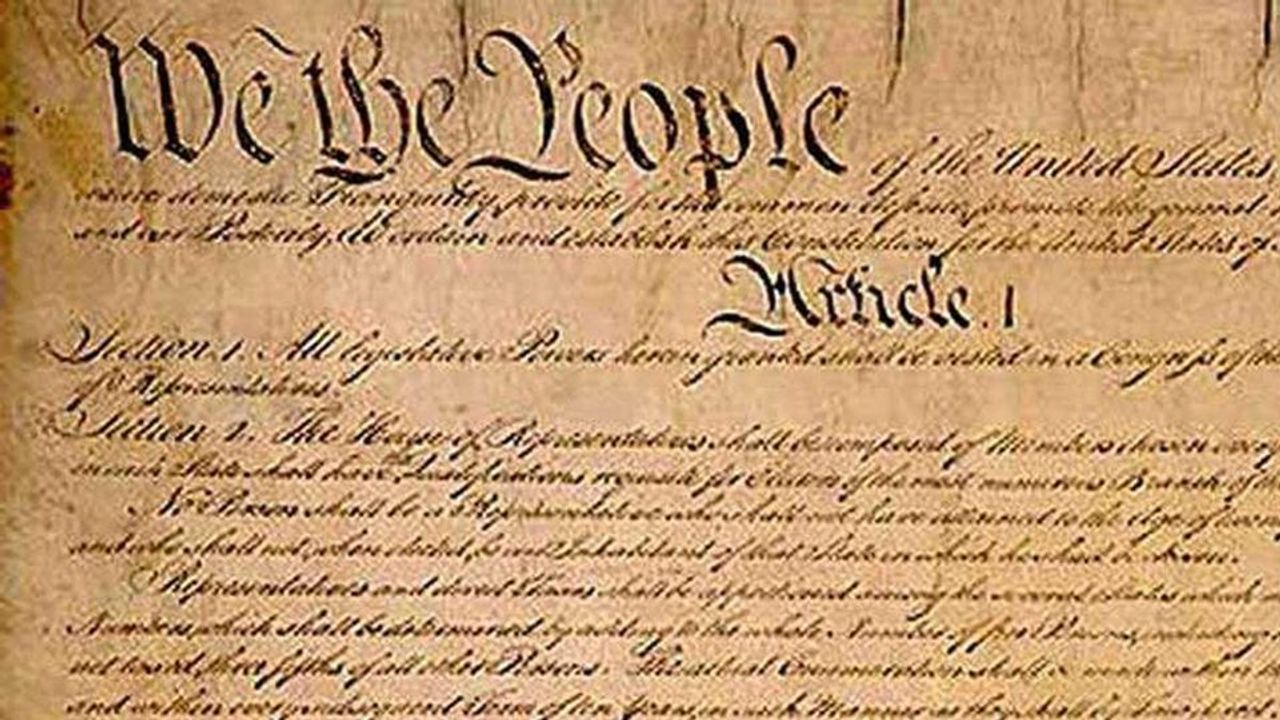 We the People of the United States,
insure domestic Tranquility, provide for the common defence, promote the general
and our Posterity, do ordain and establish this Constitution for the United States of
Article. I
Section. 1. All legislative Powers herein granted shall be vested in a Congress of the
of Representatives.
Section. 2. The House of Representatives shall be composed of Members chosen every
in each State shall have Qualifications requisite for Electors of the most numerous Branch of the
No Person shall be a Representative who shall not have attained to the Age of twenty
and who shall not, when elected, be an Inhabitant of that State in which he shall be chosen.
Representatives and direct Taxes shall be apportioned among the several States which
Numbers, which shall be determined by adding to the whole Number of free Persons, including
not taxed, three fifths of all other Persons. The actual Enumeration shall be made within
and within every subsequent Term of ten Years, in such Manner as they shall by Law